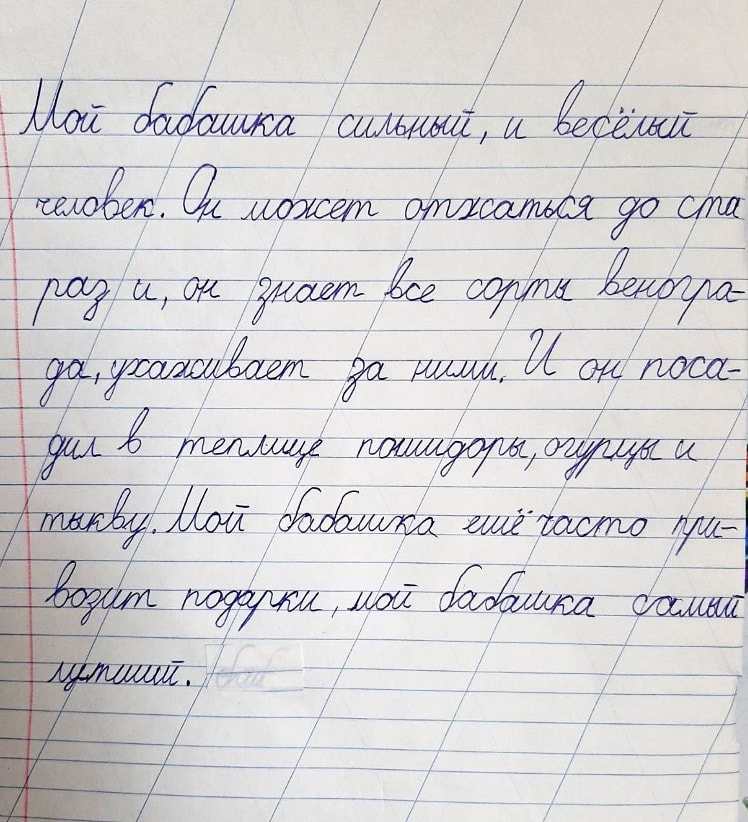 Мой бабашка сильный, и весёлый
человек. Он может отжаться до ста
раз и, он знает все сорты веногра-
да, ухаживает за ними. И он поса-
дил в теплице помидоры, огурцы и
тыкву. Мой бабашка ешё часто при-
возит подарки, мой бабашка самый
лутший.